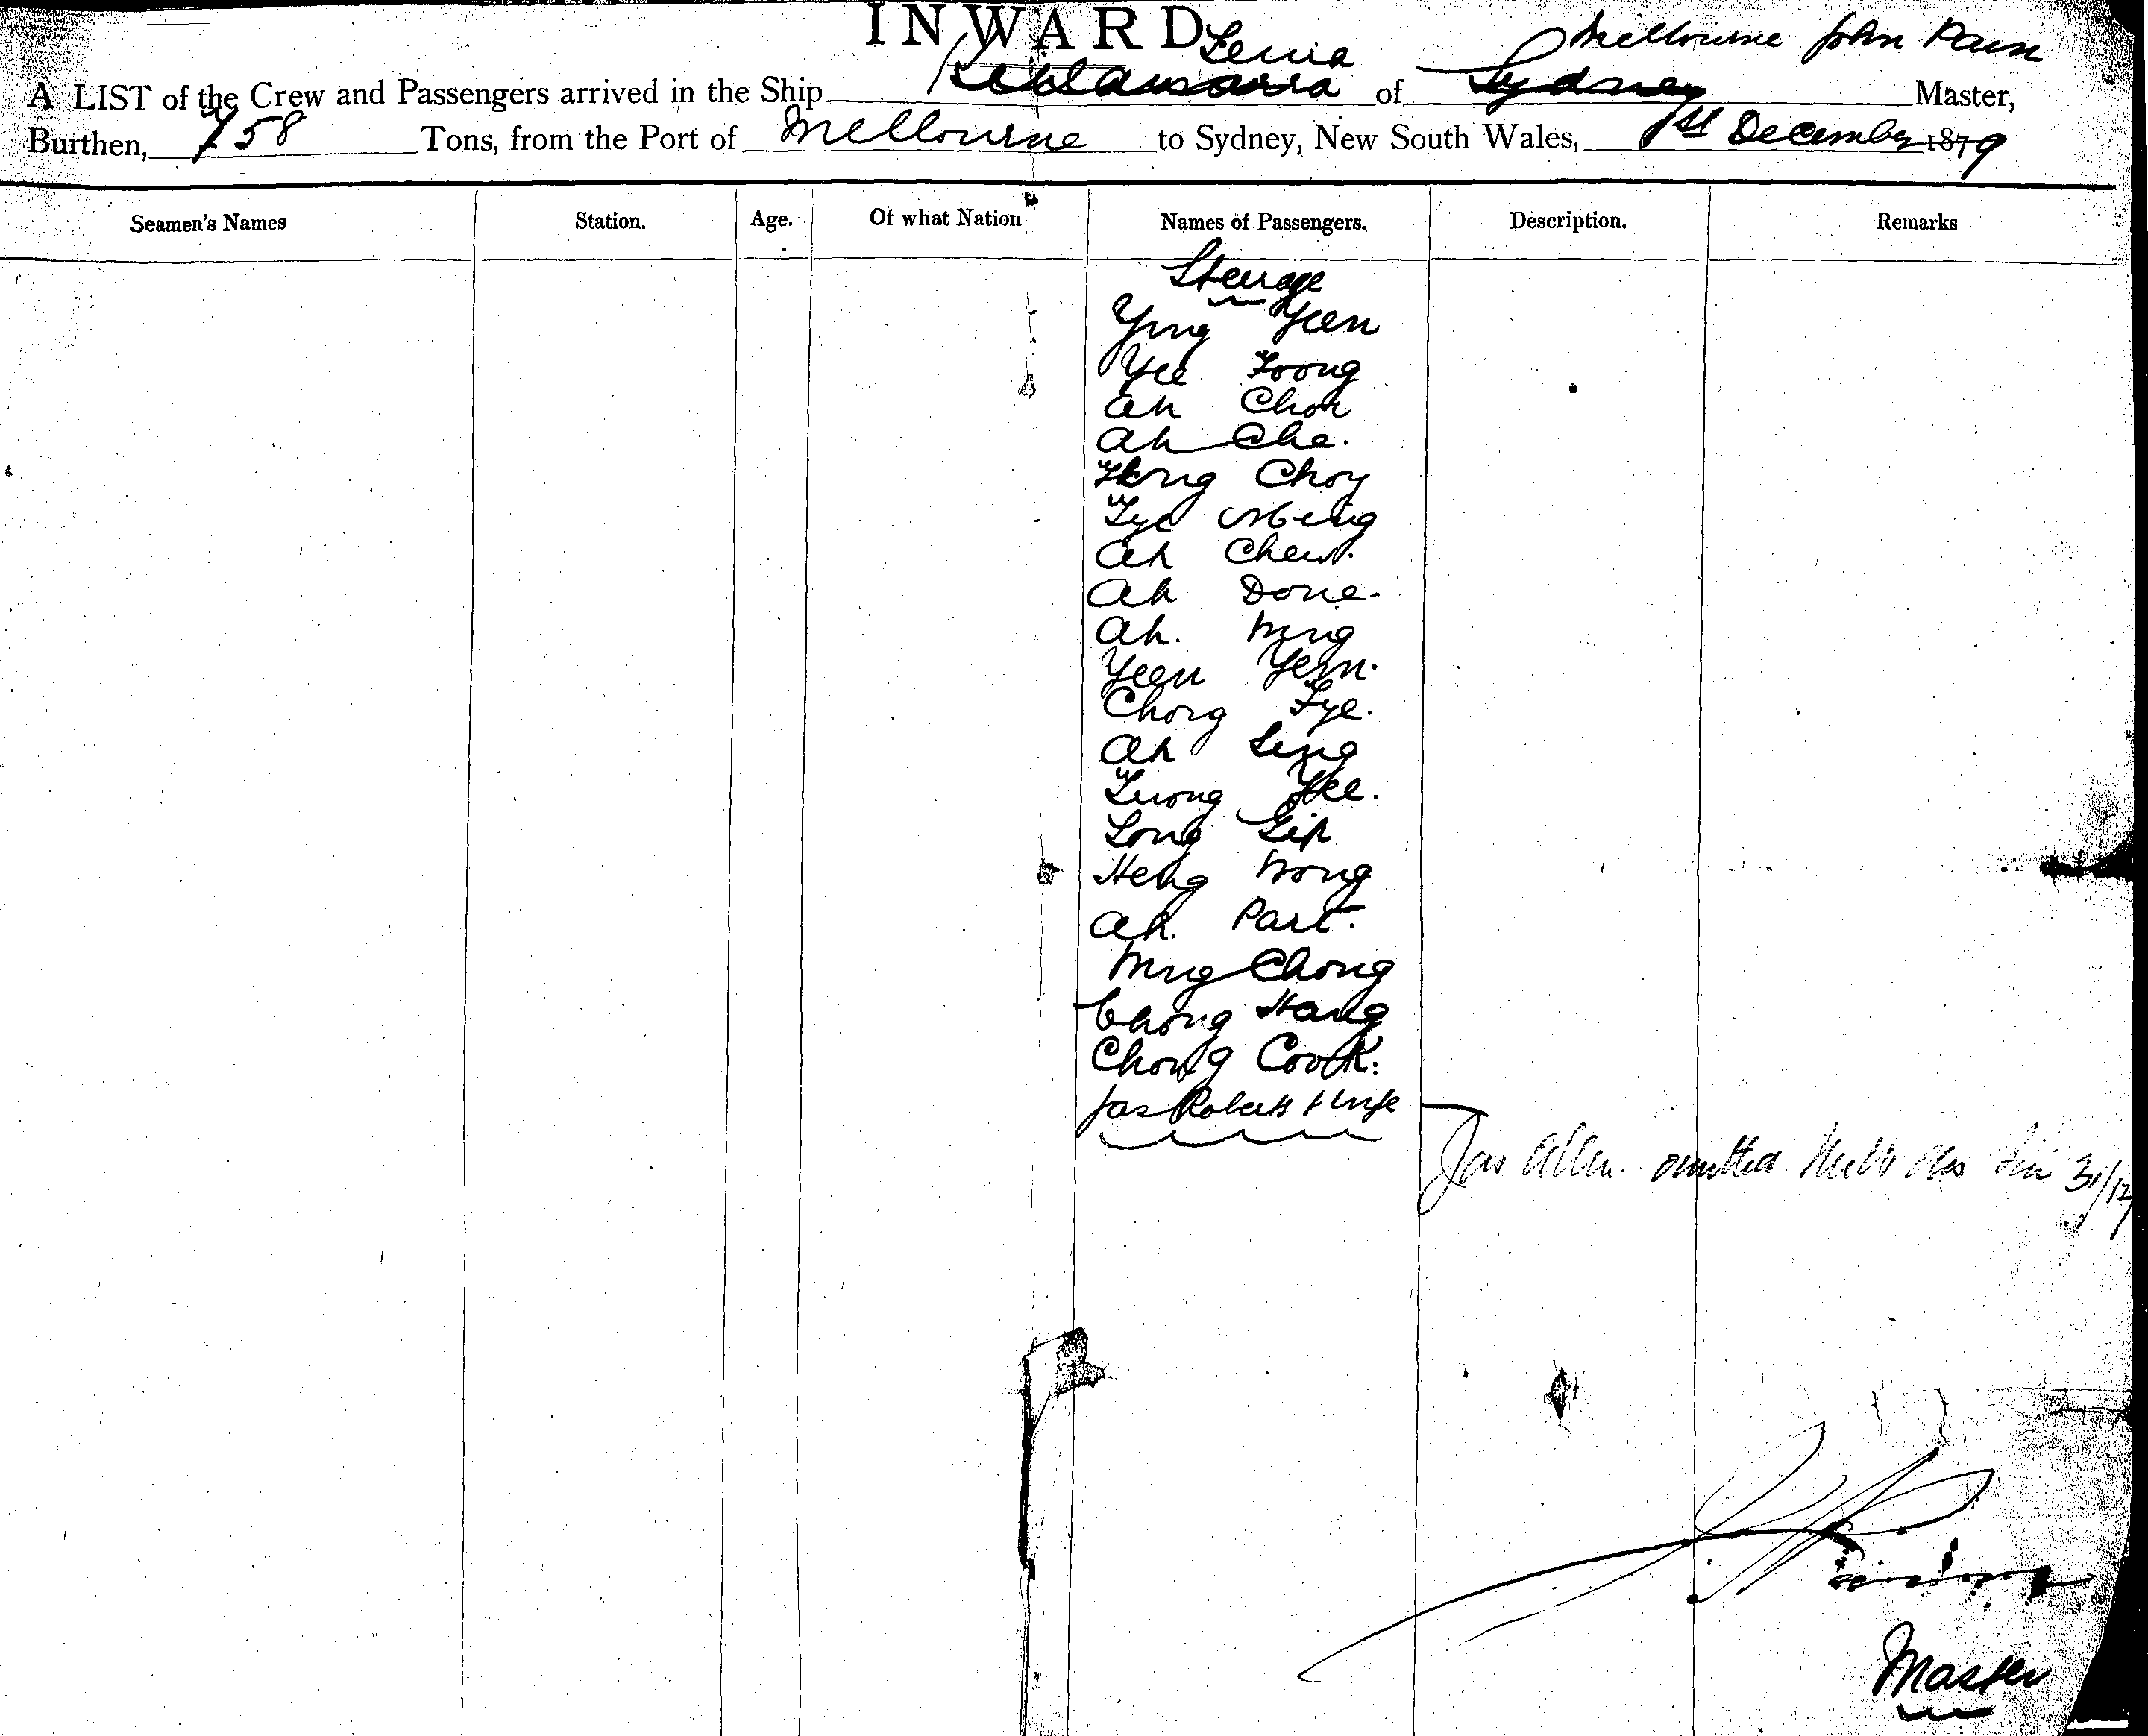 INWARD
Melbourne John Pain
A LIST of the Crew and Passengers arrived in the Ship of Sydney Master,
Burthen, 758 Tons, from the Port of Melbourne to Sydney, New South Wales, 1st December 1879
Seamen's Names Station. Age. Of what Nation Names of Passengers. Description. Remarks
Steerage
Ying Yeen
Yee Foong
Ah Chon
Ah Che.
Hong Choy
Tye Meing
Ah Chew.
Ah Done.
Ah. Ming
Yeen Yern.
Chong Tye.
Ah Sing
Luong Yee.
Long Gip
Heng Wong
Ah. Part.
Ming Chong
Chong Hang
Chong Cook.
Jas Roberts & Wife
Jas Allen omitted 31/12
Master